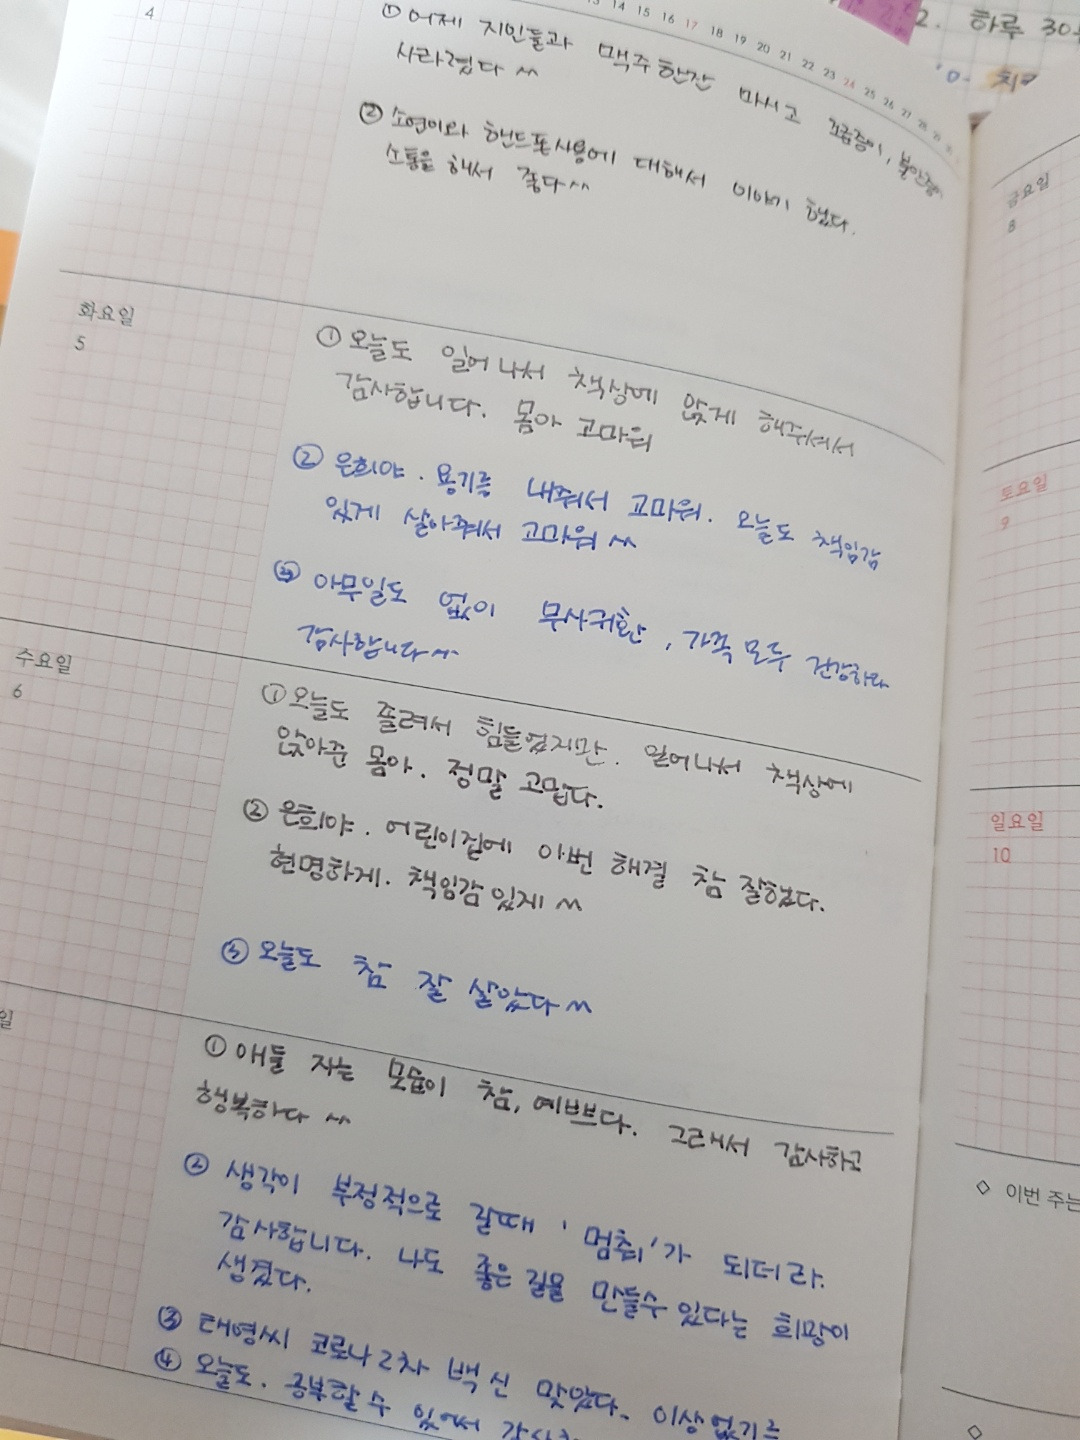 13 14 15 16 17 18 19 20 21 22 23 24 25 26 27 28 29
2. 하루 30
4
① 어제 지인들과 맥주한잔 마시고 조급증이, 불안증이
사라졌다 ^^
② 소영이와 핸드폰사용에 대해서 이야기 했다.
소통을 해서 좋다^^
화요일
5
① 오늘도 일어나서 책상에 앉게 해줘서
감사합니다. 몸아 고마워
② 은희야. 용기를 내줘서 고마워. 오늘도 책임감
있게 살아줘서 고마워 ^^
③ 아무일도 없이 무사귀환, 가족 모두 건강하라
감사합니다^^
수요일
6
① 오늘도 졸려서 힘들었지만. 일어나서 책상에
앉아준 몸아. 정말 고맙다.
② 은희야. 어린이집에 이번 해결 참 잘했다.
현명하게. 책임감있게 ^^
③ 오늘도 참 잘 살았다^^
일
① 애들 자는 모습이 참, 예쁘다. 그래서 감사하고
행복하다 ^^
② 생각이 부정적으로 갈때 '멈춤'가 되더라.
감사합니다. 나도 좋은 길을 만들수 있다는 희망이
생겼다.
③ 태영씨 코로나 2차 백신 맞았다. 이상없기를
④ 오늘도. 공부할 수 있어서
금요일
8
토요일
9
일요일
10
◇ 이번 주는
◇